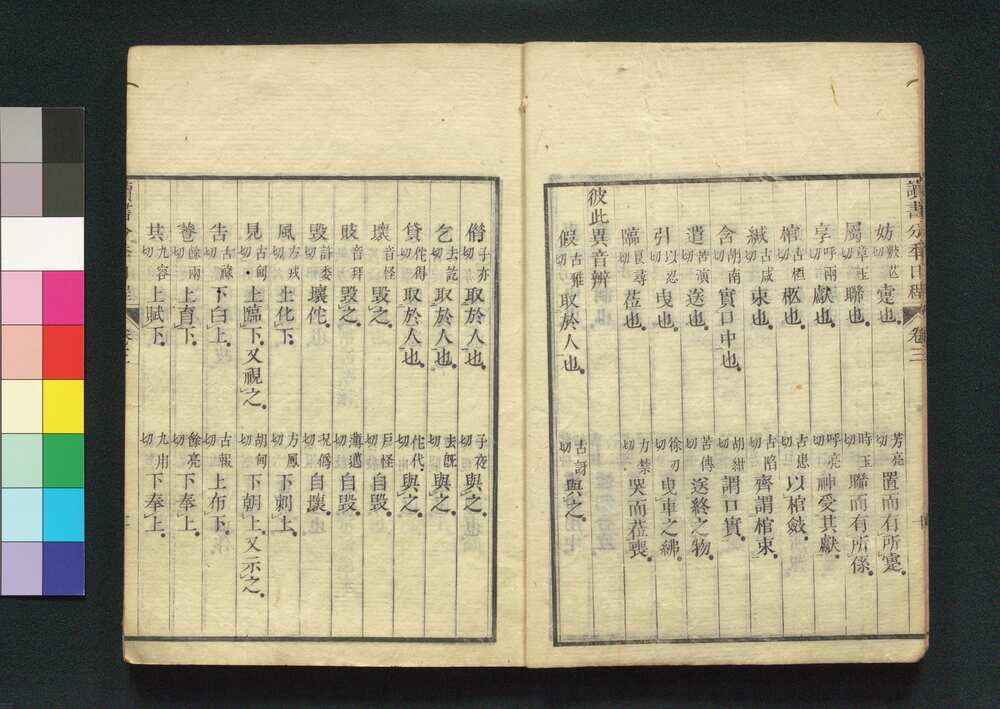 妨敷亡切寔也芳亮切置而有所寔
屬章玉切聯也時玉切聯而有所係
享呼兩切獻也呼亮切神受其獻
棺古桓切柩也古患切以棺斂
緘古咸切束也古陷切齊謂棺束
含胡南切實口中也胡紺切謂口實
遣苦演切送也苦傳切送終之物
引以忍切曳也徐刃切曳車之紼
臨切莅也力禁切哭而莅喪
彼此異音辨
假古雅切取於人也古訝切與之
借子亦切取於人也子夜切與之
乞去訖切取於人也去旣切與之
貸佗得切取於人也佗代切與之
壞音怪毀之戶怪切自毀
敗音拜毀之薄邁切自毀
毀許委切壞佗況僞切自壞
風方戎切上化下方鳳切下刺上
見古甸切上臨下又視之胡甸切下朝上又示之
告古祿切下白上古報切上布下
養餘兩切上育下餘亮切下奉上
共九容切上賦下九用切下奉上
讀書分年日程
卷三